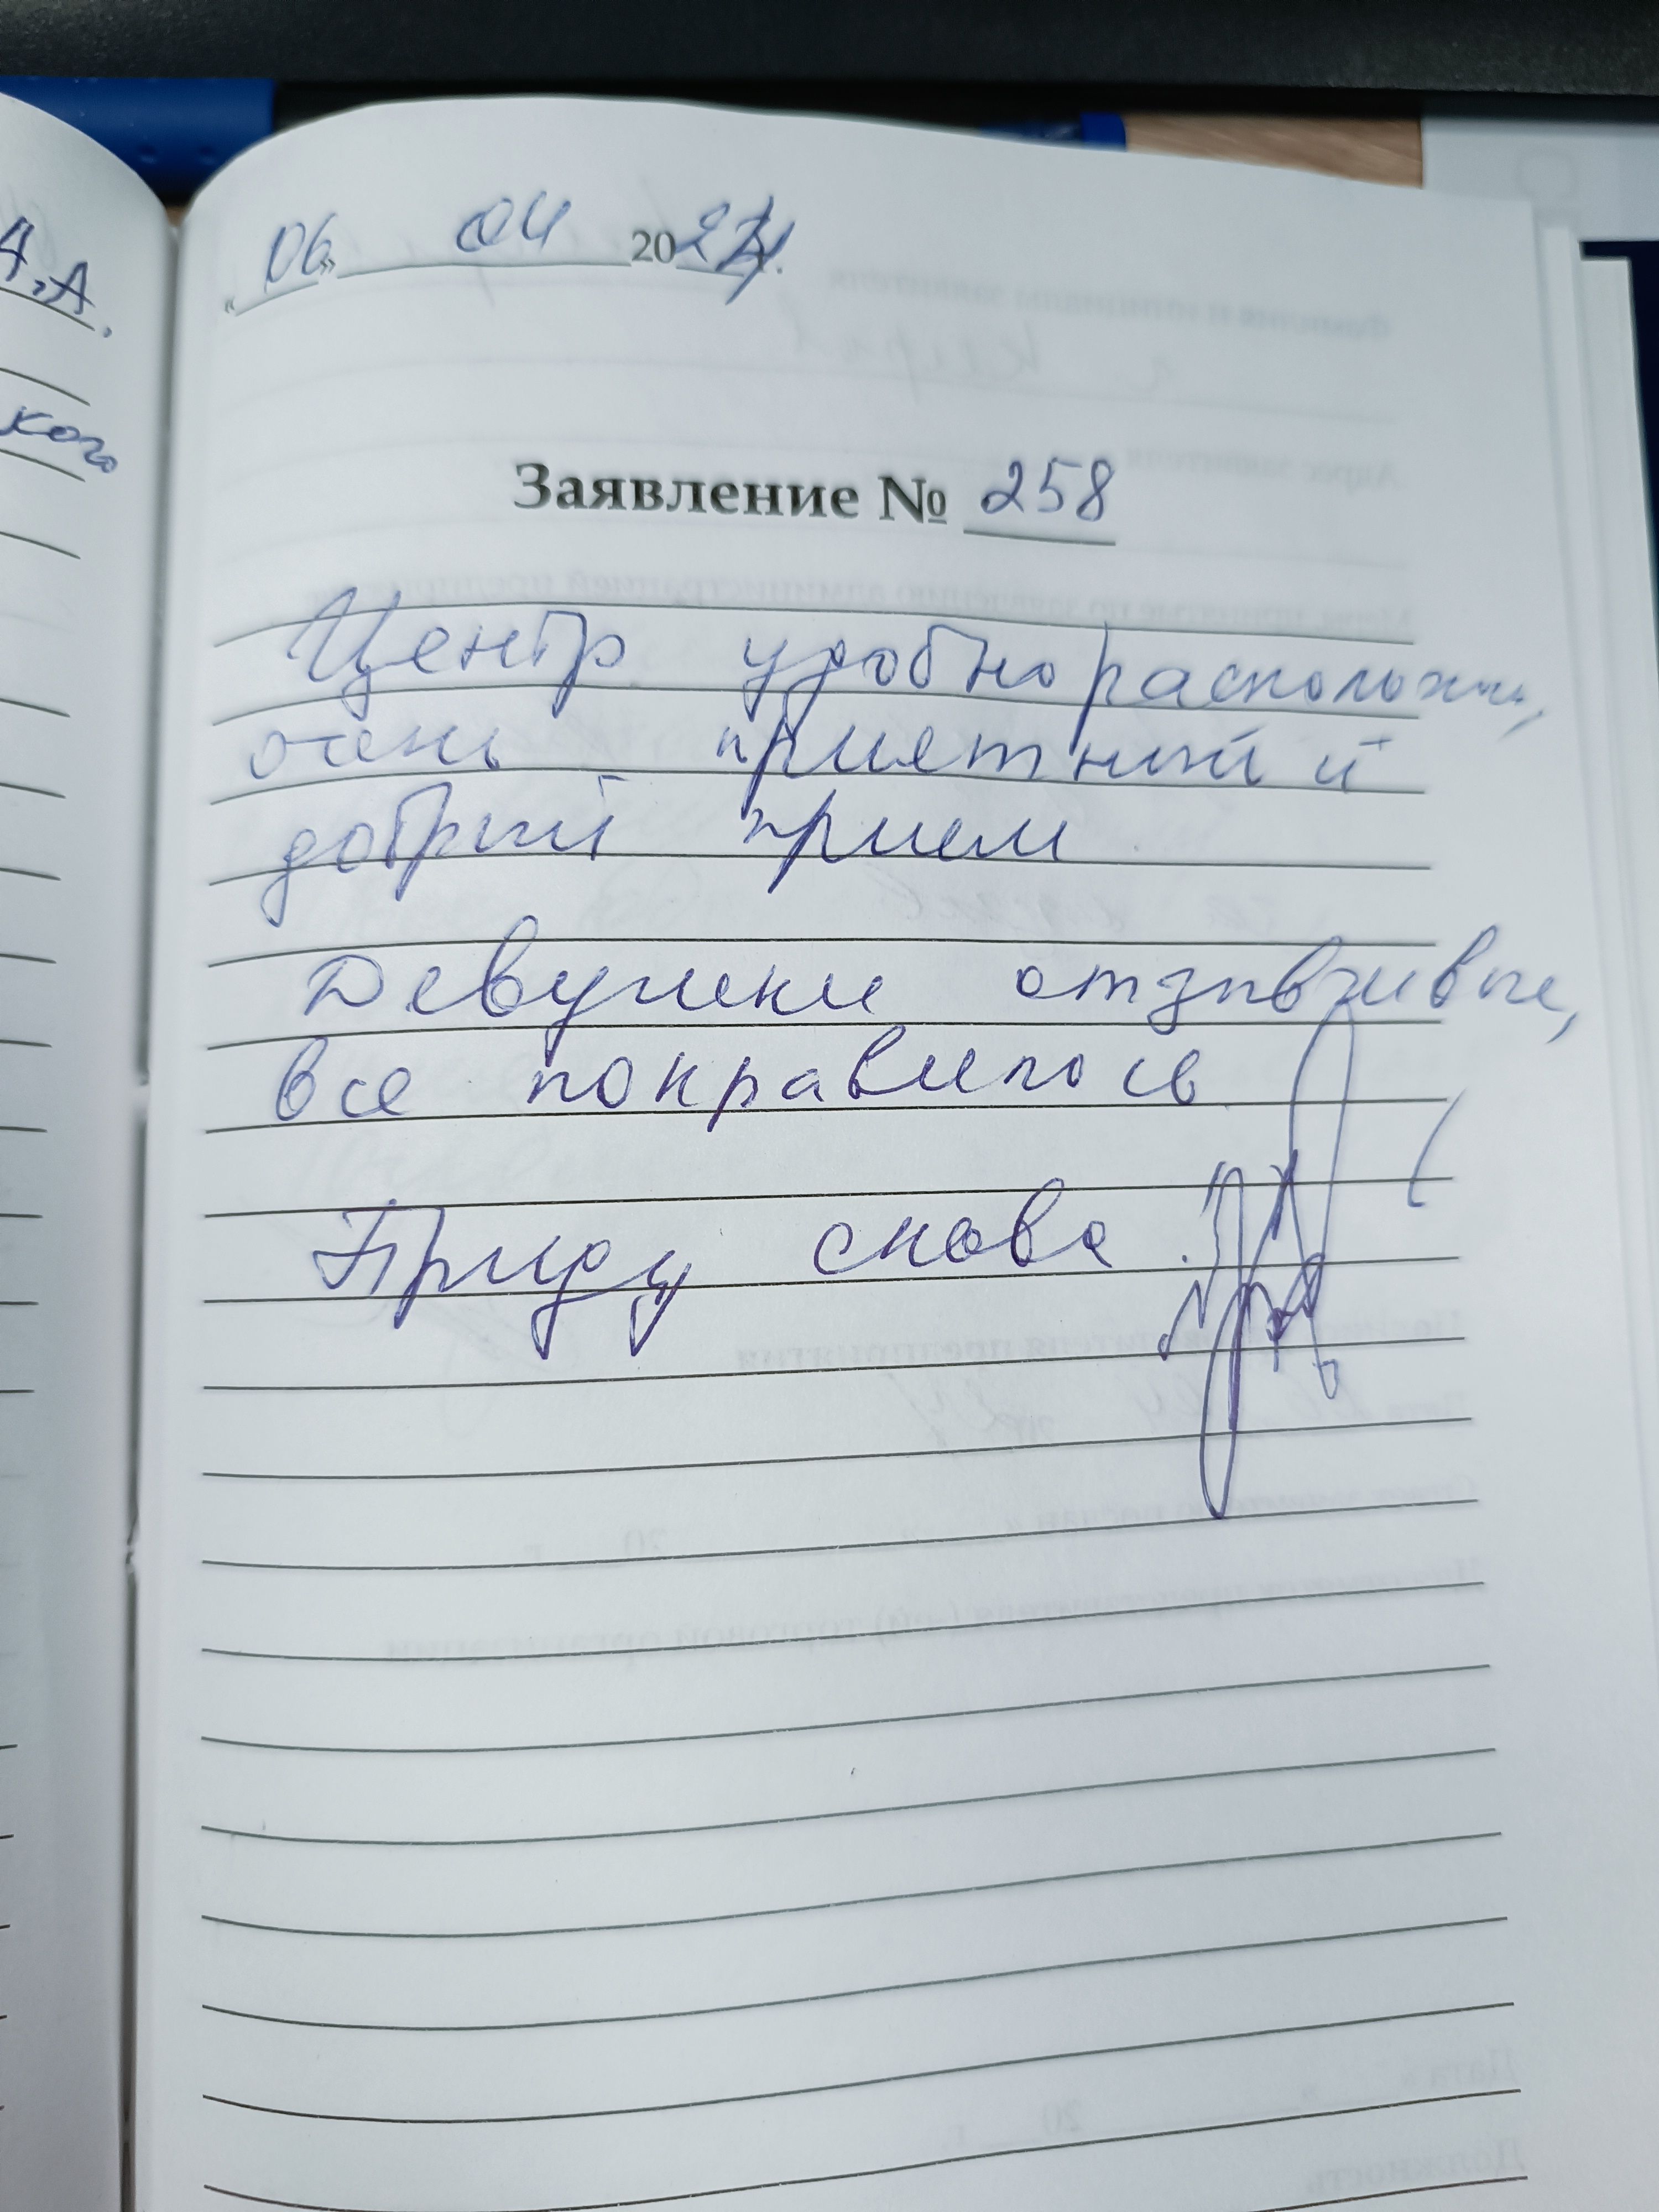 А.А.
кого
«06» 04 2024 г.
Заявление № 258
Центр удобно расположен,
очень приятный и
добрый прием
Девушки отзывчивые,
все понравилось
Приду снова.